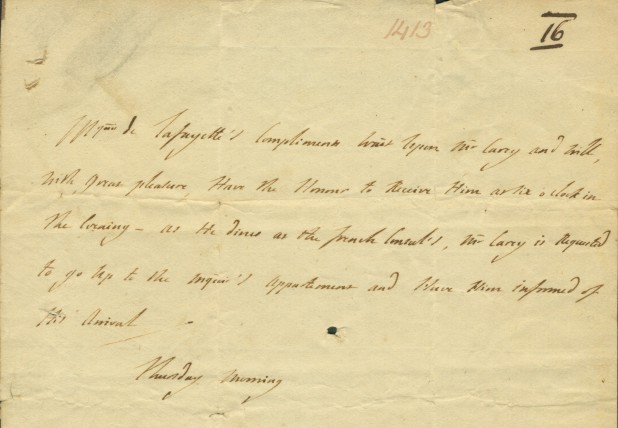 1413
16
Mquis de Lafayette's Compliments wait Upon Mr Carey and will,
with Great pleasure, Have the Honour to Receive Him at six o clock in
the Evening – as He dines at the french Consul's, Mr Carey is Requested
to go Up to the Mquis's appartement and Have Him informed of
His Arrival
thursday morning